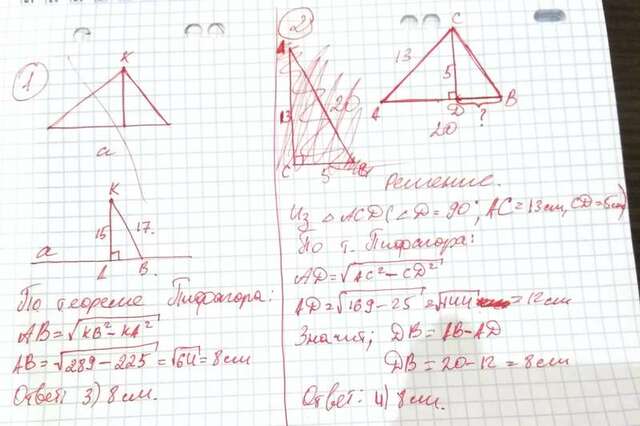 1
K
a
K
15
17.
a
A
B.
По теореме Пифагора:
AB=√KB²-KA²
AB=√289-225=√64=8см
Ответ: 3) 8 см.
2
A
20
13
C
5
B
C
13
5
A
D
B
20
?
Решение.
Из △ACD(∠D=90°; AC=13см, CD=5см)
По т. Пифагора:
AD=√AC²-CD²
AD=√169-25=√144=12см
Значит; DB=AB-AD
DB=20-12=8см
Ответ: 4) 8 см.